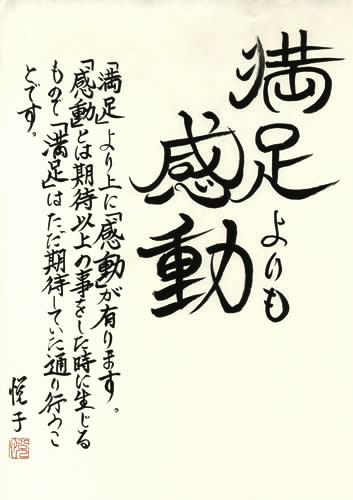 満足
よりも
感動
「満足」より上に「感動」が有ります。
「感動」とは期待以上の事をした時に生じる
もので「満足」はただ期待していた通り行うこ
とです。
悦子